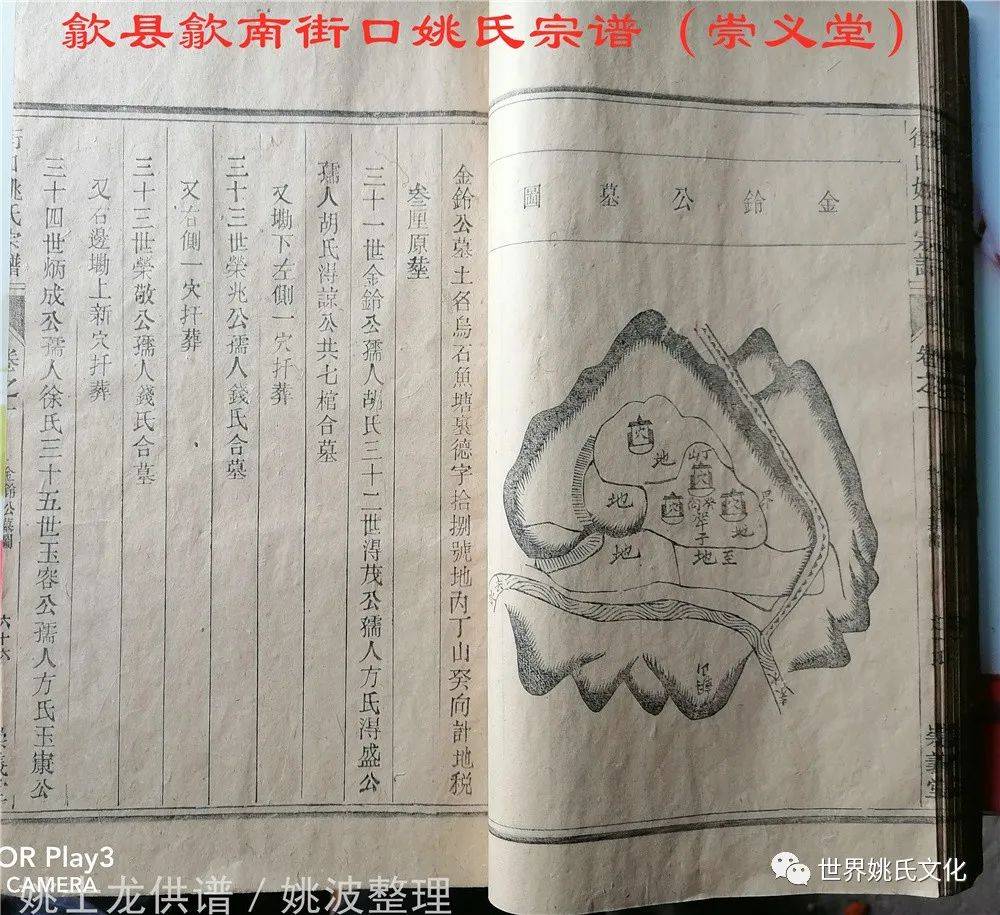 歙县歙南街口姚氏宗谱（崇义堂）
金鈴公墓圖
地
丁山
癸向
地
地
地
地至
崇義堂
金鈴公墓土名烏石魚塘裏德字拾捌號地內丁山癸向計地税
叁厘原塋
三十一世金鈴公孺人胡氏三十二世得茂公孺人方氏得盛公
孺人胡氏得諒公共七棺合墓
又墈下左側一穴扦葬
三十三世榮兆公孺人錢氏合墓
又右側一穴扦葬
三十三世榮敬公孺人錢氏合墓
又右邊墈上新穴扦葬
三十四世炳成公孺人徐氏三十五世玉容公孺人方氏玉康公
街口姚氏宗譜
卷之
金鈴公墓圖
六十六
崇義堂
OR Play3
CAMERA
姚土龙供谱 / 姚波整理
世界姚氏文化